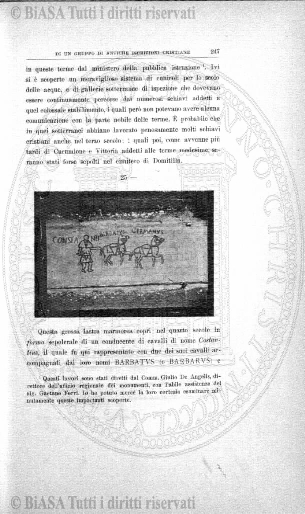 © BiASA Tutti i diritti riservati
DI UN GRUPPO DI ANTICHE ISCRIZIONI CRISTIANE 247
in queste terme dal ministero della pubblica istruzione ¹. Ivi
si è scoperto un meraviglioso sistema di cunicoli per lo scolo
delle acque, e di gallerie sotterranee di ispezione che dovevano
essere continuamente percorse dai numerosi schiavi addetti a
quel colossale stabilimento, i quali però non potevano avere alcuna
comunicazione con la parte nobile delle terme. È probabile che
in quei sotterranei abbiano lavorato penosamente molti schiavi
cristiani anche nel terzo secolo; i quali poi, come avvenne più
tardi di Cucumione e Vittoria addetti alle terme medesime,
ranno stati forse sepolti nel cimitero di Domitilla.
25 —
Questa grossa lastra marmorea coprì nel quarto secolo la
fossa sepolcrale di un conducente di cavalli di nome
il quale fu qui rappresentato con due dei suoi cavalli ac-
compagnati dai loro nomi BARBATVS (o BARBARVS) e
¹ Questi lavori sono stati diretti dal Comm. Giulio De Angelis, di-
rettore dell'ufficio regionale dei monumenti, con l'abile assistenza del
sig. Gaetano Ferri. Io ho potuto mercè la loro cortesia esaminare mi-
nutamente queste importanti scoperte.
© BiASA Tutti i diritti riservati